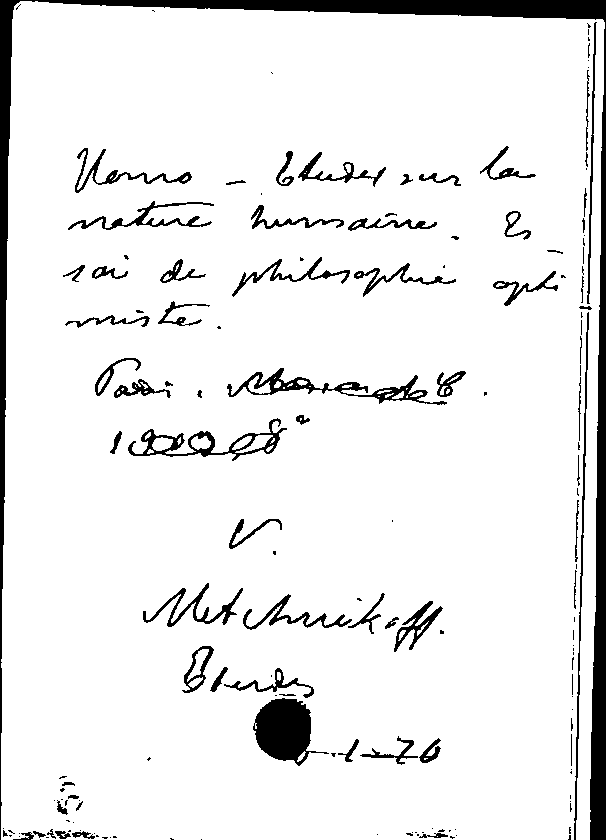 Homo – Etudes sur la
nature humaine. Es_
sai de philosophie opti
miste.
Paris.
V.
Metchnikoff.
Etudes
1-76